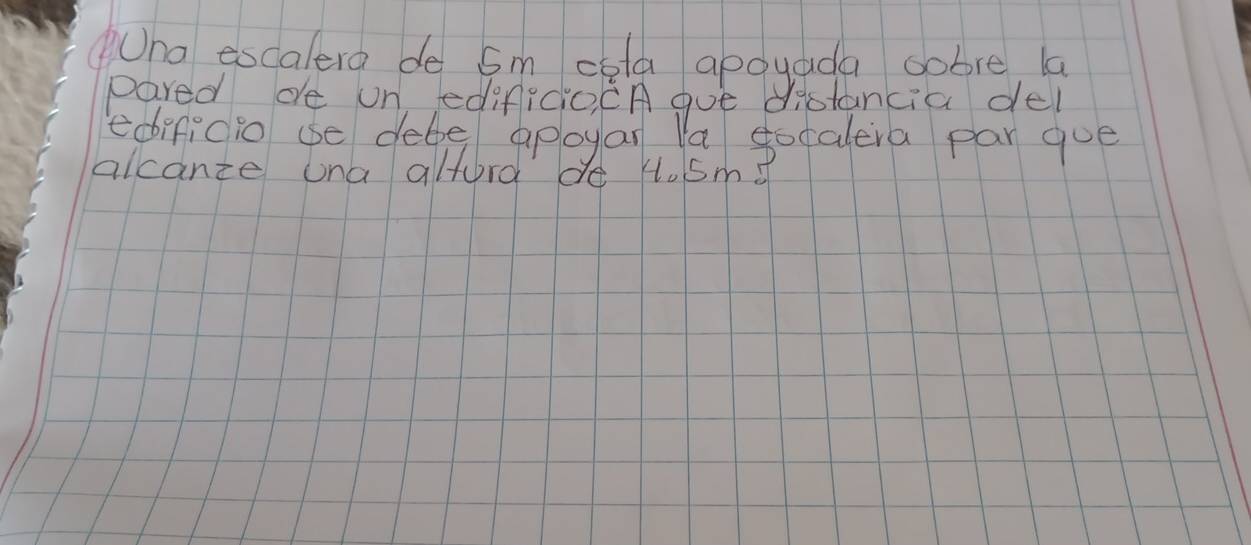 ② Una escalera de 5m esta apoyada sobre la
pared de un edificio,¿A que distancia del
edificio se debe apoyar la escalera par que
alcanze una altura de 4.5m?